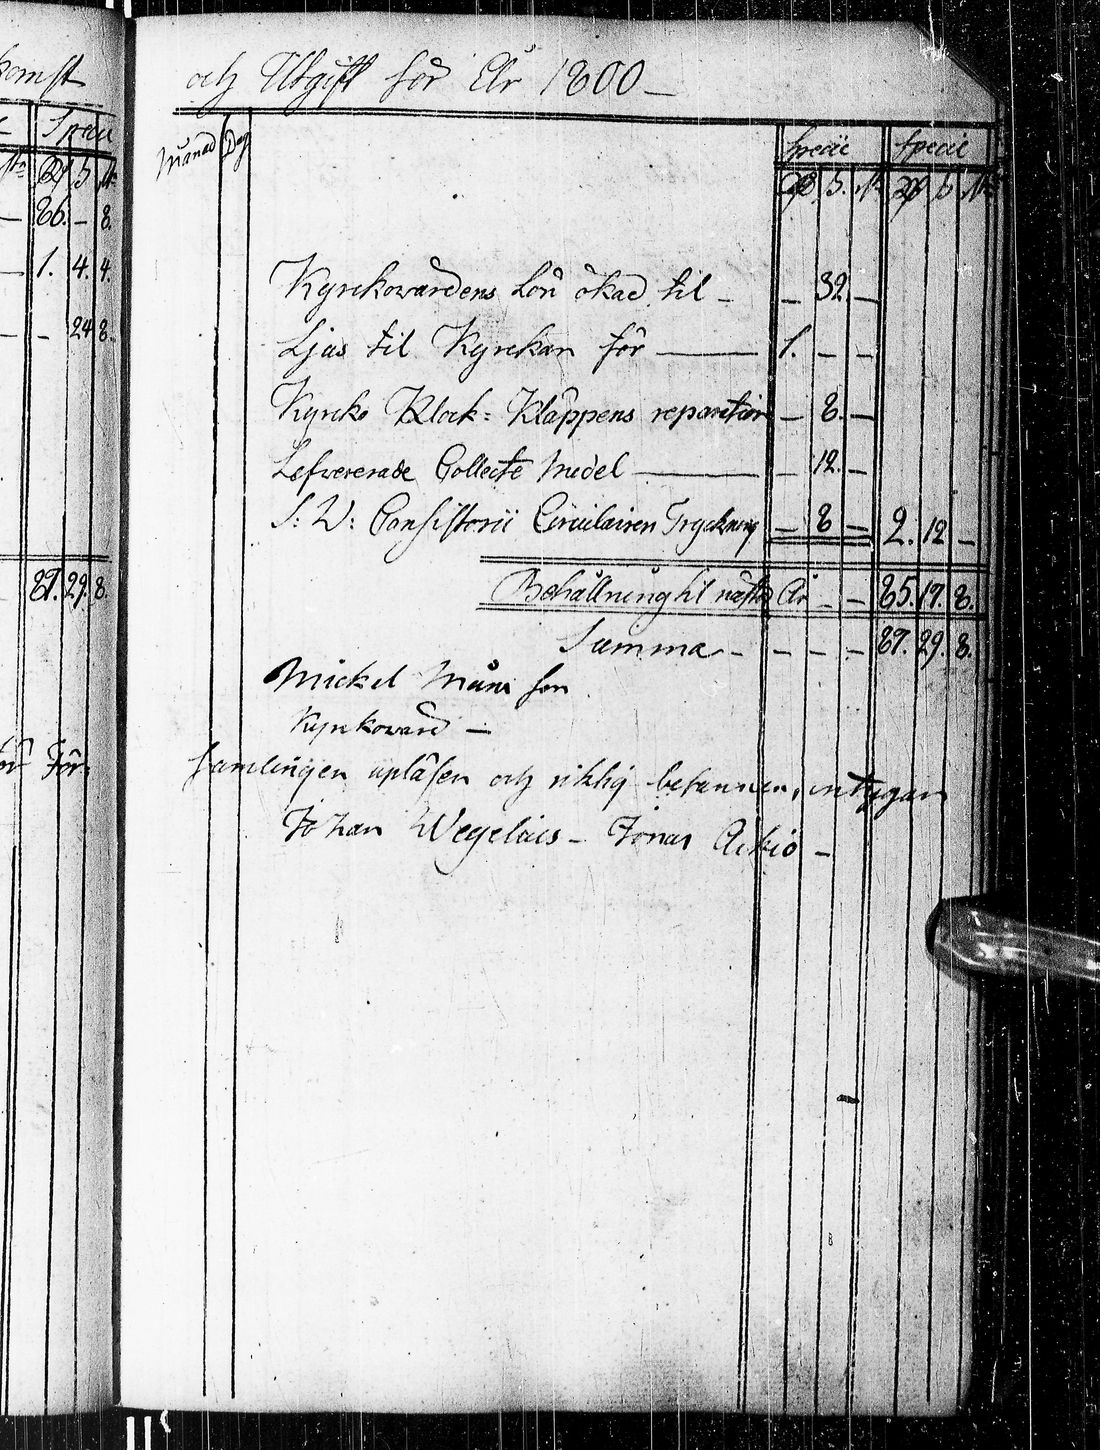 komst
Specie
Rd s. rst.
86. - 8.
1. 4. 4.
- 24 8.
87. 29. 8.
För:
och Utgift för År 1800 -
Månad Dag Specie Specie
Rd s. rst. Rd s. rst.
Kyrckowärdens Lön ökad til - - 32. -
Ljus til Kyrckan för 1. - -
Kyrcko Klock= Kläppens reparation - 8. -
Lefvererade Collecte Medel - 12. -
S: W: Consistorii Circulairen Tryckning - 8 - 2. 12 -
Behållning til nästa År - - 85. 17. 8.
Summa - - - - 87. 29. 8.
Mickel Måns son
Kyrkowärd -
samlingen upläsen och riktig befunnen, intygar
Johan Wegelius - Jonas Ackio -